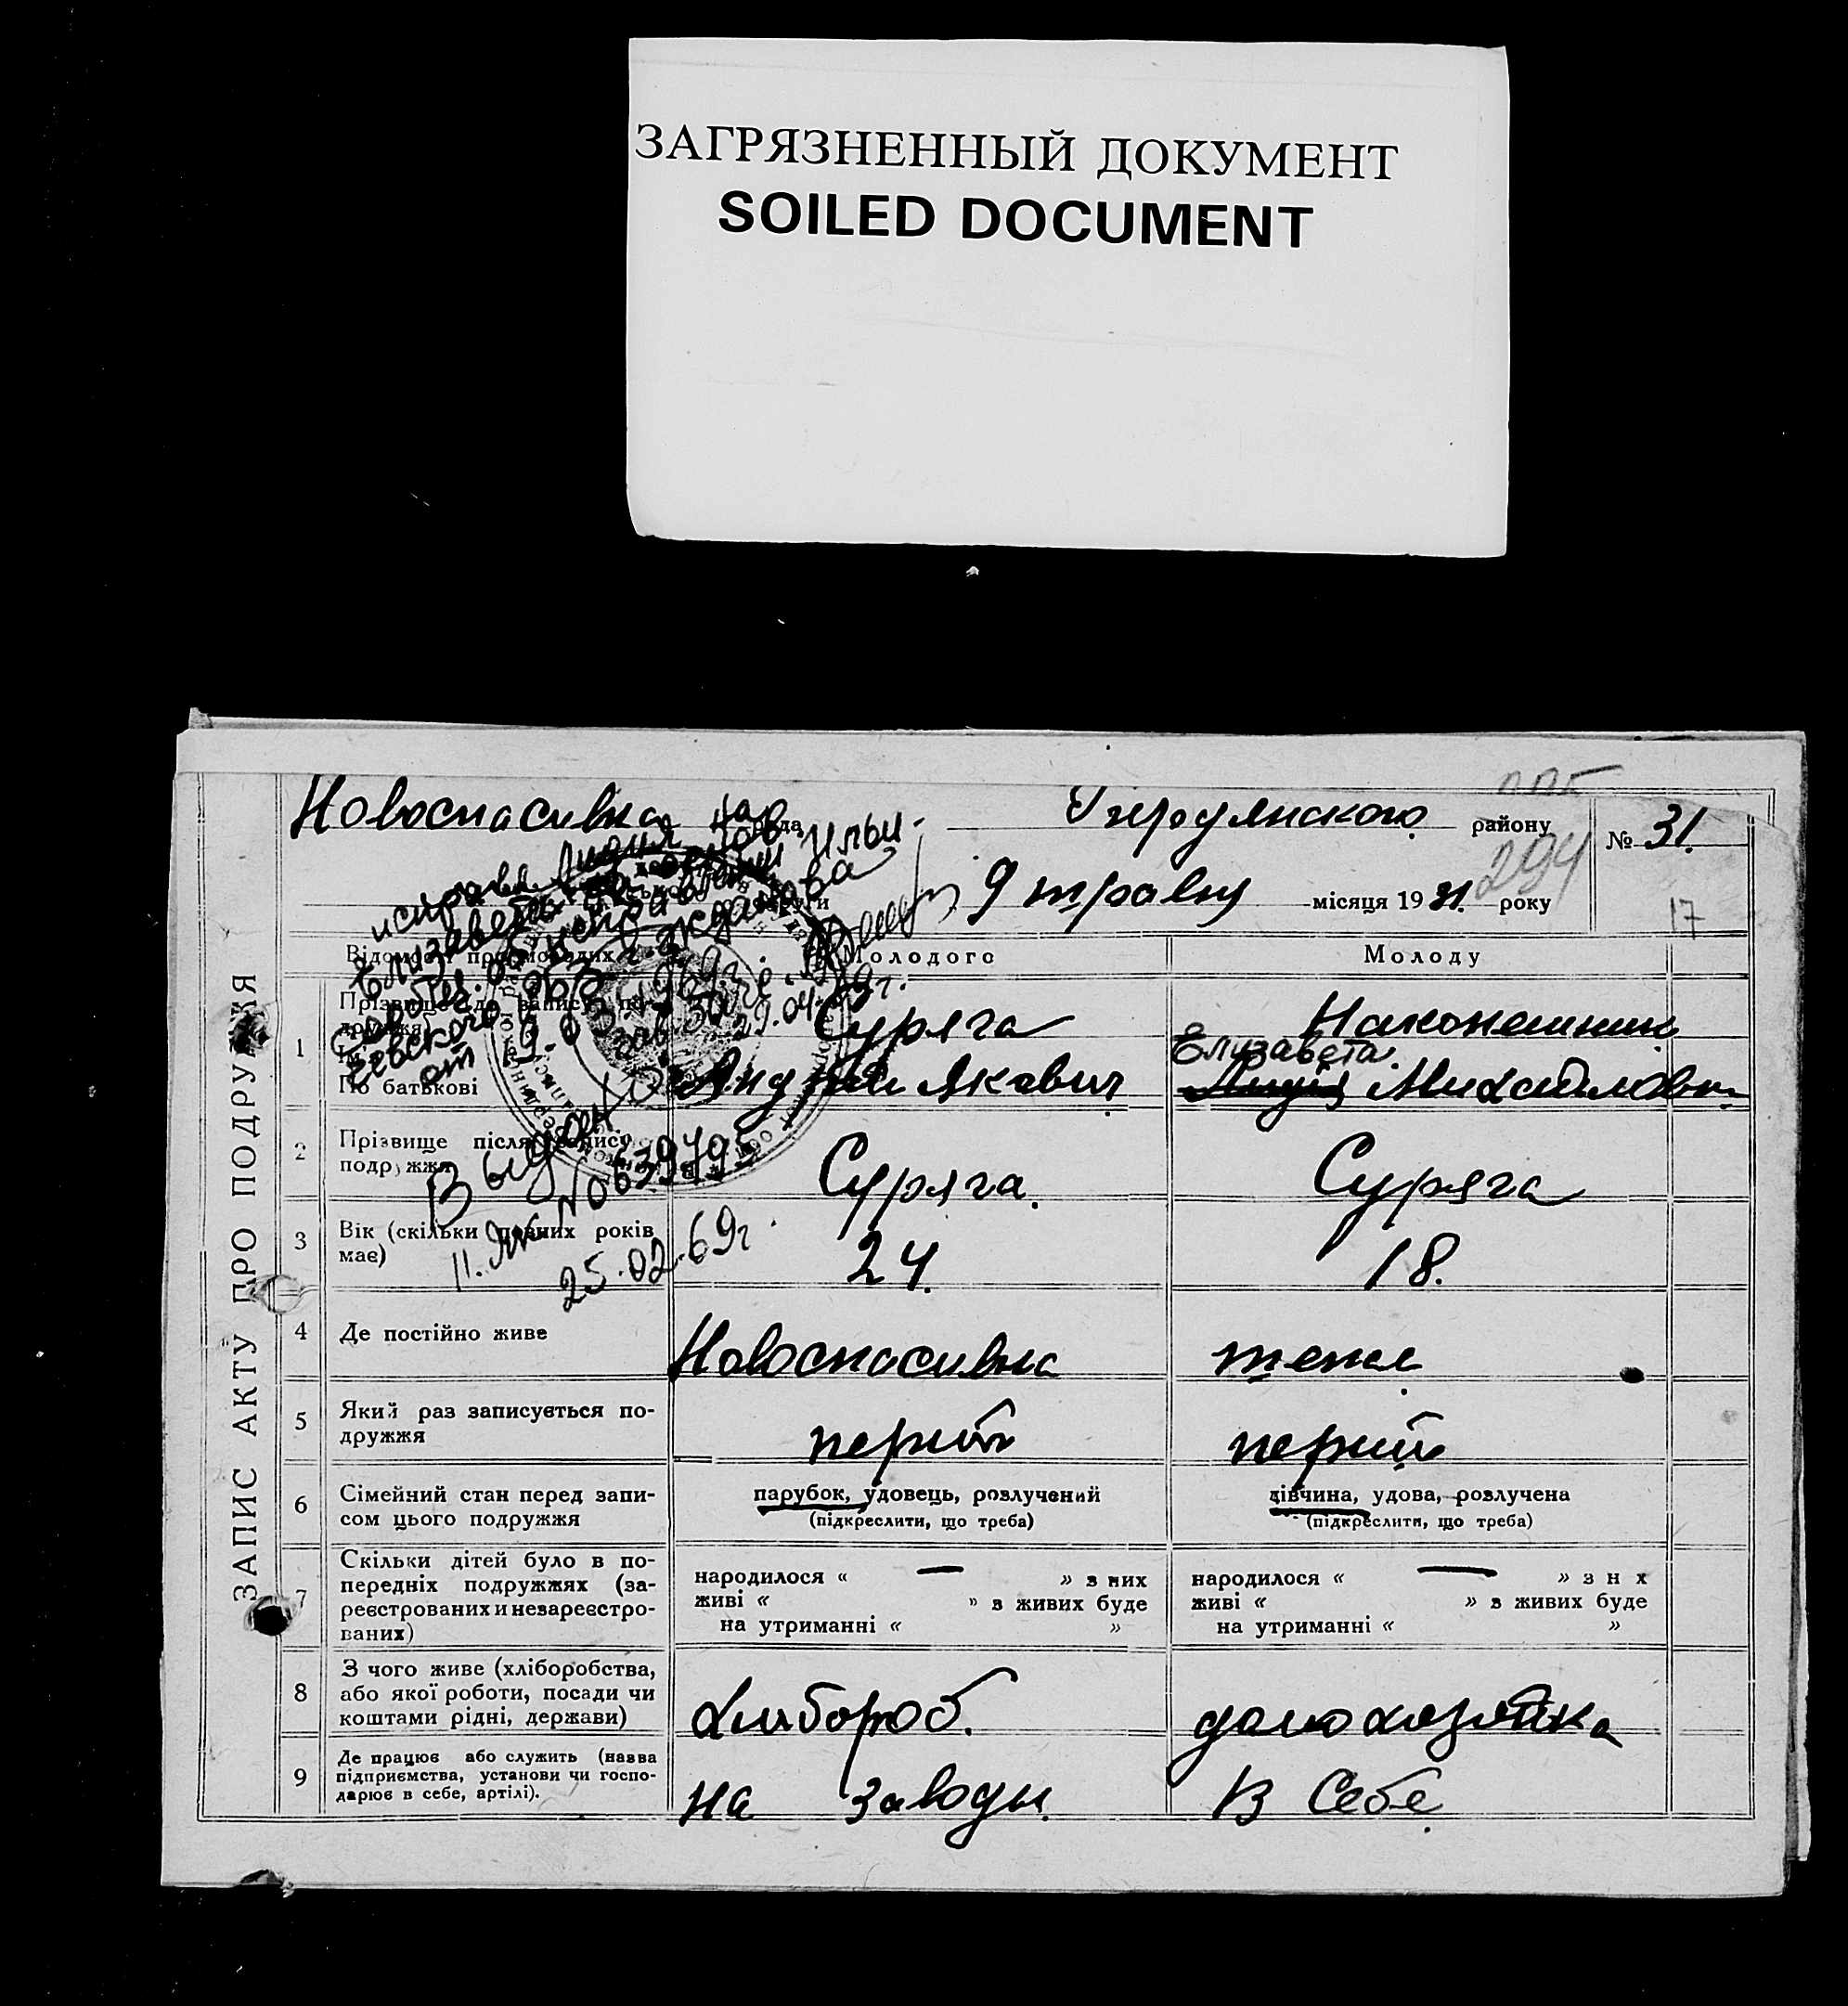 ЗАГРЯЗНЕННЫЙ ДОКУМЕНТ
SOILED DOCUMENT
Новоспасивка рада району № 31.
294
округи 9 травня місяця 1931. року
17
исправл. Лидия на
Елизавета на основ.
от 19.03.1969г.
29.04.69г.
Выдан
№ 639795
25.02.69г
ЗАПИС АКТУ ПРО ПОДРУЖЖЯ
Відомості про молодих Молодого Молоду
1 Прізвище (до запису подружжя) Суряга
Ім'я Елизавета
По батькові Андрий Якович Лидия Михайловн.
2 Прізвище після запису подружжя Суряга. Суряга
3 Вік (скільки повних років має) 24. 18.
4 Де постійно живе Новоспасивка теже
5 Який раз записується по-
дружжя перший перший
6 Сімейний стан перед запи-
сом цього подружжя
парубок, удовець, розлучений
(підкреслити, що треба)
дівчина, удова, розлучена
(підкреслити, що треба)
7 Скільки дітей було в по-
передніх подружжях (за-
реєстрованих и незареєстро-
ваних)
народилося « — » з них
живі « » з живих буде
на утриманні « »
народилося « — » з н х
живі « » з живих буде
на утриманні « »
8 З чого живе (хліборобства,
або якої роботи, посади чи
коштами рідні, держави)
хлибороб. домохозяйка
9 Де працює або служить (назва
підприємства, установи чи госпо-
дарює в себе, артілі).
на заводы В себе